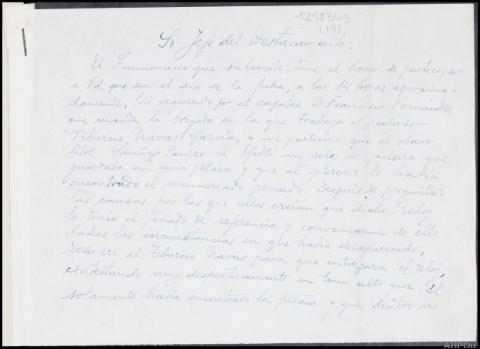 12983/03
(19)
Sr Jefe del Destacamento:
El Funcionario que suscribe, tiene el honor de participar
a Vd. que en el día de la fecha, a las 14 horas aproxima-
damente, fui requerido por el capataz D. Francisco Fernández
que manda la brigada en la que trabaja el recluso
Tiburcio Navas García, y me participó que al obrero
libre Santiago le faltó un reloj de pulsera que
guardaba en una petaca y que al parecer le había
encontrado el mencionado penado. Después de preguntar
las causas por las que ellos creían que dicho reloj
lo tenía el penado de referencia y convencerme de ello
dadas las circunstancias en que había desaparecido,
requerí al Tiburcio Navas para que entregara el reloj,
contestando muy despectivamente en tono alto que él
solamente había encontrado la petaca y que dentro no
AHPGu